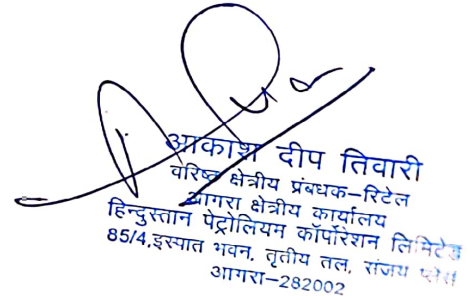 आकाश दीप तिवारी
वरिष्ठ क्षेत्रीय प्रबंधक–रिटेल
आगरा क्षेत्रीय कार्यालय
हिन्दुस्तान पेट्रोलियम कॉर्पोरेशन लिमिटेड
85/4,इस्पात भवन, तृतीय तल, संजय प्लेस
आगरा–282002